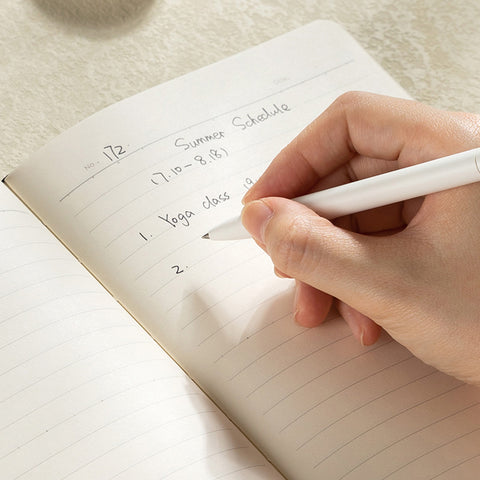 No. 172
Summer Schedule
(7.10 - 8.18)
1. Yoga class
2.